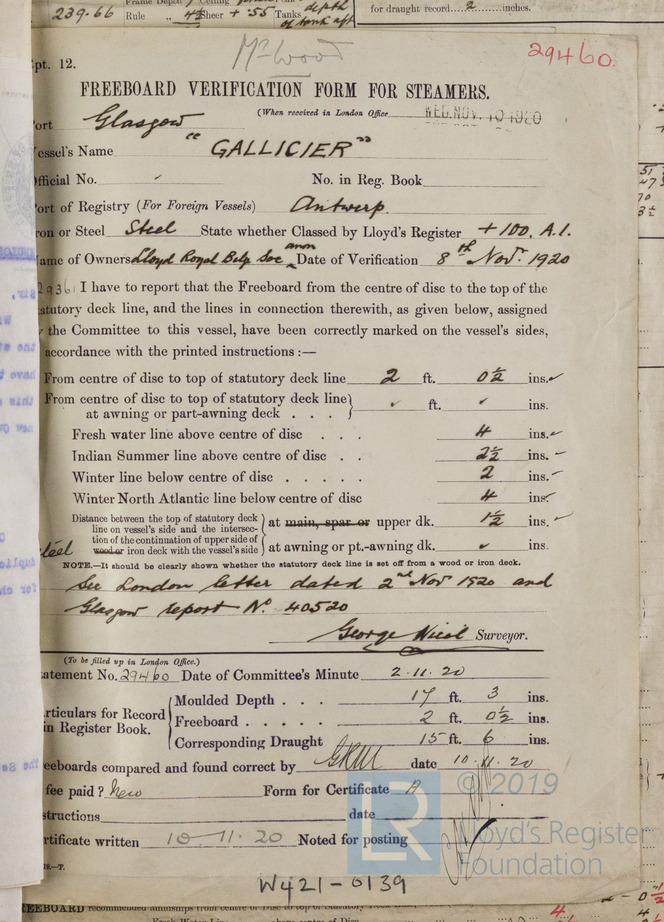 239.66 Rule 4½ Sheer + .55 Tanks depth of tank aft
for draught record 2 inches.
Mr Wood
29460.
pt. 12.
FREEBOARD VERIFICATION FORM FOR STEAMERS.
(When received in London Office WED. NOV. 10 1920
ort Glasgow
essel's Name "GALLICIER"
fficial No. No. in Reg. Book
ort of Registry (For Foreign Vessels) Antwerp.
ron or Steel Steel State whether Classed by Lloyd's Register + 100. A.1.
ame of Owners Lloyd Royal Belg Soc anon Date of Verification 8th Nov. 1920
I have to report that the Freeboard from the centre of disc to the top of the
atutory deck line, and the lines in connection therewith, as given below, assigned
the Committee to this vessel, have been correctly marked on the vessel's sides,
accordance with the printed instructions :—
From centre of disc to top of statutory deck line 2 ft. 0½ ins.
From centre of disc to top of statutory deck line
at awning or part-awning deck . . . ft. ins.
Fresh water line above centre of disc . . . 4 ins.
Indian Summer line above centre of disc . . 2½ ins.
Winter line below centre of disc . . . . . 2 ins.
Winter North Atlantic line below centre of disc 4 ins.
Distance between the top of statutory deck
line on vessel's side and the intersec-
tion of the continuation of upper side of
steel wood or iron deck with the vessel's side
at main, spar or upper dk. 1½ ins.
at awning or pt.-awning dk. ins.
NOTE.—It should be clearly shown whether the statutory deck line is set off from a wood or iron deck.
See London letter dated 2nd Nov 1920 and
Glasgow report No. 40520
George Nicol Surveyor.
(To be filled up in London Office.)
atement No. 29460 Date of Committee's Minute 2.11.20
rticulars for Record
in Register Book.
Moulded Depth . . . 17 ft. 3 ins.
Freeboard . . . . . 2 ft. 0½ ins.
Corresponding Draught 15 ft. 6 ins.
eeboards compared and found correct by date 10.11.20
fee paid? New Form for Certificate A
structions date
rtificate written 10-11.20 Noted for posting
© 2019
LR
Lloyd's Register
Foundation
W421-0139